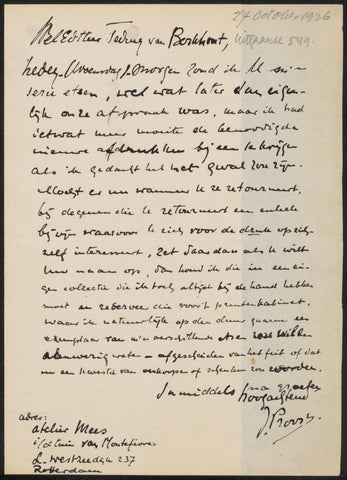 27 October 1926
WelEdelheer Teding van Berkhout, Witteprse 549.
heden (Woensdag) morgen zond ik U mijn
serie etsen, wel wat later dan eigen-
lijk onze afspraak was, maar ik had
ietwat meer moeite de benoodigde
nieuwe afdrukken bij een te krijgen
als ik gedacht had het geval zou zijn.
Mocht er nu wanneer U ze retourneert,
bij degenen die U retourneert een enkele
bij zijn waarvoor U zich voor de druk op zich-
zelf interesseert, zet daar dan als U wilt
Uw naam op, dan houd ik die in een ei-
gen collectie die ik toch altijd bij de hand hebben
moet en reserveer die voor 't prentenkabinet,
waar ik natuurlijk op den duur gaarne een
exemplaar van m'n verschillende etsen zou willen
aanwezig weten - afgescheiden van het feit of dat
nu een kwestie van aankoopen of schenken zou worden.
Inmiddels na groeten
hoogachtend
J Prooy.
adres:
atelier Mees
i/d tuin van Montefiore
L. Westzeedijk 237
Rotterdam